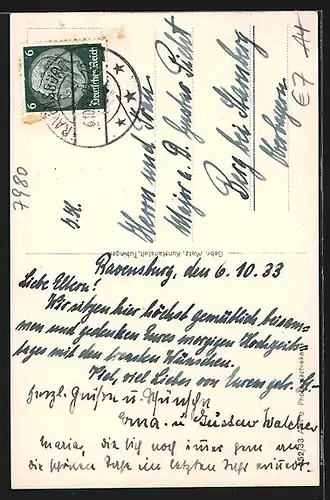 6
6
Deutsches Reich
RAVENSBURG
6.10.
7980
E7 A4
S. H.
Herrn und Frau
Major a. D. Gustav
Berg bei Starnberg
Oberbayern
Gebr. Metz, Kunstanstalt, Tübingen
Ravensburg, den 6.10.33
Liebe Eltern!
Wir sitzen hier höchst gemütlich beisam-
men und gedenken Eures morgigen Hochzeits-
tages mit den besten Wünschen.
Viel, viel Liebes von Euren getr.
Herzl. Grüße u. Wünsche
Erna u. Gustav
Maria, die sich noch immer gern an
die schönen Tage im letzten Jahr erinnert.